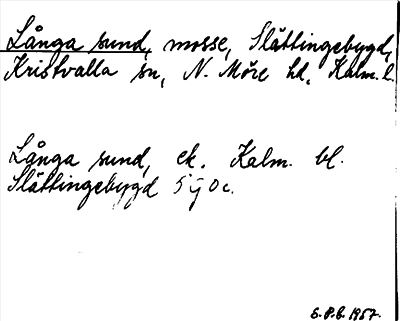 Långa sund, mosse, Slättingebygd,
Kristvalla sn, N. Möre hd, Kalm. l.
Långa sund, ek. Kalm. bl.
Slättingebygd 5 g 0 c.
S.P.B. 1957.